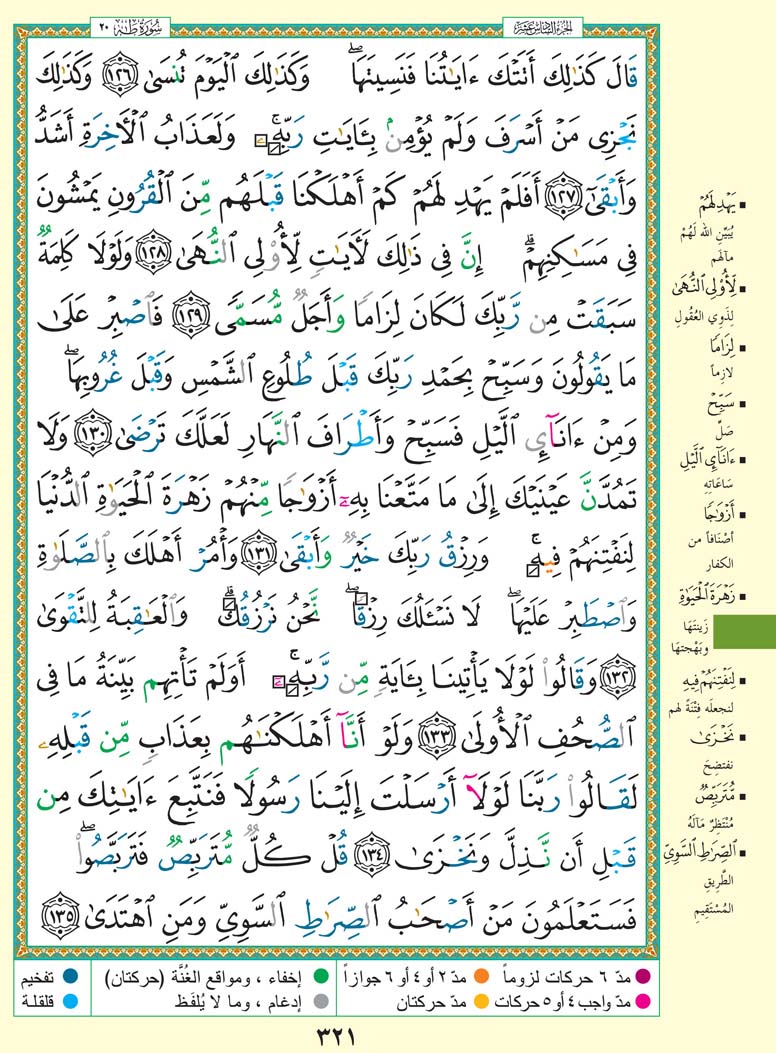 سُورَةُ طه ٢٠
الجزء السادس عشر
قَالَ كَذَٰلِكَ أَتَتْكَ ءَايَٰتُنَا فَنَسِيتَهَاۖ وَكَذَٰلِكَ الْيَوْمَ تُنسَىٰ ﴿١٢٦﴾ وَكَذَٰلِكَ
نَجْزِى مَنْ أَسْرَفَ وَلَمْ يُؤْمِنۢ بِـَٔايَٰتِ رَبِّهِۦۚ وَلَعَذَابُ ٱلْأَخِرَةِ أَشَدُّ
وَأَبْقَىٰٓ ﴿١٢٧﴾ أَفَلَمْ يَهْدِ لَهُمْ كَمْ أَهْلَكْنَا قَبْلَهُم مِّنَ ٱلْقُرُونِ يَمْشُونَ
فِى مَسَٰكِنِهِمْۗ إِنَّ فِى ذَٰلِكَ لَأَيَٰتٍ لِّأُو۟لِى ٱلنُّهَىٰ ﴿١٢٨﴾ وَلَوْلَا كَلِمَةٌ
سَبَقَتْ مِن رَّبِّكَ لَكَانَ لِزَامًا وَأَجَلٌ مُّسَمًّى ﴿١٢٩﴾ فَٱصْبِرْ عَلَىٰ
مَا يَقُولُونَ وَسَبِّحْ بِحَمْدِ رَبِّكَ قَبْلَ طُلُوعِ ٱلشَّمْسِ وَقَبْلَ غُرُوبِهَاۖ
وَمِنْ ءَانَآئِ ٱلَّيْلِ فَسَبِّحْ وَأَطْرَافَ ٱلنَّهَارِ لَعَلَّكَ تَرْضَىٰ ﴿١٣٠﴾ وَلَا
تَمُدَّنَّ عَيْنَيْكَ إِلَىٰ مَا مَتَّعْنَا بِهِۦٓ أَزْوَٰجًا مِّنْهُمْ زَهْرَةَ ٱلْحَيَوٰةِ ٱلدُّنْيَا
لِنَفْتِنَهُمْ فِيهِۚ وَرِزْقُ رَبِّكَ خَيْرٌ وَأَبْقَىٰ ﴿١٣١﴾ وَأْمُرْ أَهْلَكَ بِٱلصَّلَوٰةِ
وَٱصْطَبِرْ عَلَيْهَاۖ لَا نَسْـَٔلُكَ رِزْقًاۖ نَّحْنُ نَرْزُقُكَۗ وَٱلْعَٰقِبَةُ لِلتَّقْوَىٰ
﴿١٣٢﴾ وَقَالُوا۟ لَوْلَا يَأْتِينَا بِـَٔايَةٍ مِّن رَّبِّهِۦٓۚ أَوَلَمْ تَأْتِهِم بَيِّنَةُ مَا فِى
ٱلصُّحُفِ ٱلْأُولَىٰ ﴿١٣٣﴾ وَلَوْ أَنَّآ أَهْلَكْنَٰهُم بِعَذَابٍ مِّن قَبْلِهِۦ
لَقَالُوا۟ رَبَّنَا لَوْلَآ أَرْسَلْتَ إِلَيْنَا رَسُولًا فَنَتَّبِعَ ءَايَٰتِكَ مِن
قَبْلِ أَن نَّذِلَّ وَنَخْزَىٰ ﴿١٣٤﴾ قُلْ كُلٌّ مُّتَرَبِّصٌ فَتَرَبَّصُوا۟ۖ
فَسَتَعْلَمُونَ مَنْ أَصْحَٰبُ ٱلصِّرَٰطِ ٱلسَّوِىِّ وَمَنِ ٱهْتَدَىٰ ﴿١٣٥﴾
يَهْدِ لَهُمْ
يُبَيِّنِ الله لَهُمْ
مآلهم
لِأُوْلِى ٱلنُّهَىٰ
لِذَوِي العُقُولِ
لِزَامًا
لازماً
سَبِّحْ
صَلِّ
ءَانَآئِ ٱلَّيْلِ
سَاعَاتِهِ
أَزْوَٰجًا
أصْنَافاً من
الكفار
زَهْرَةَ ٱلْحَيَوٰةِ
زَينتَهَا
وبَهْجتهَا
لِنَفْتِنَهُمْ فِيهِ
لنجعلَه فِتْنَةً لهم
نَخْزَىٰ
نفتضِحَ
مُّتَرَبِّصٌ
مُنْتَظِرٌ مَآلَهُ
ٱلصِّرَٰطِ ٱلسَّوِىِّ
الطَّرِيقِ
المُسْتَقِيمِ
مدّ ٦ حركات لزوماً
مدّ ٢ أو ٤ أو ٦ جوازاً
إخفاء ، ومواقع الغُنَّة (حركتان)
تفخيم
مدّ واجب ٤ أو ٥ حركات
مدّ حركتان
إدغام ، وما لا يُلفَظ
قلقلة
٣٢١